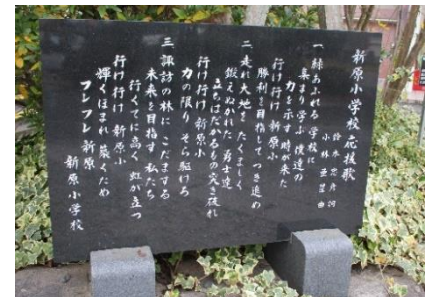 新原小学校 応援歌
鈴木忠彦 詞
小林亜星 曲
一 緑あふれる 学校に
集まり学ぶ 僕達の
力を示す 時が来た
行け行け 新原小
勝利を目指して つき進め
二 走れ大地を たくましく
鍛えぬかれた 勇士達
立ちはだかるもの 突き破れ
行け行け 新原小
力の限り そら駆けろ
三 諏訪の林に こだまする
未来を目指す 私たち
行くてに高く 虹が立つ
行け行け 新原小
輝くほまれ 築くため
フレフレ 新原
新原小学校